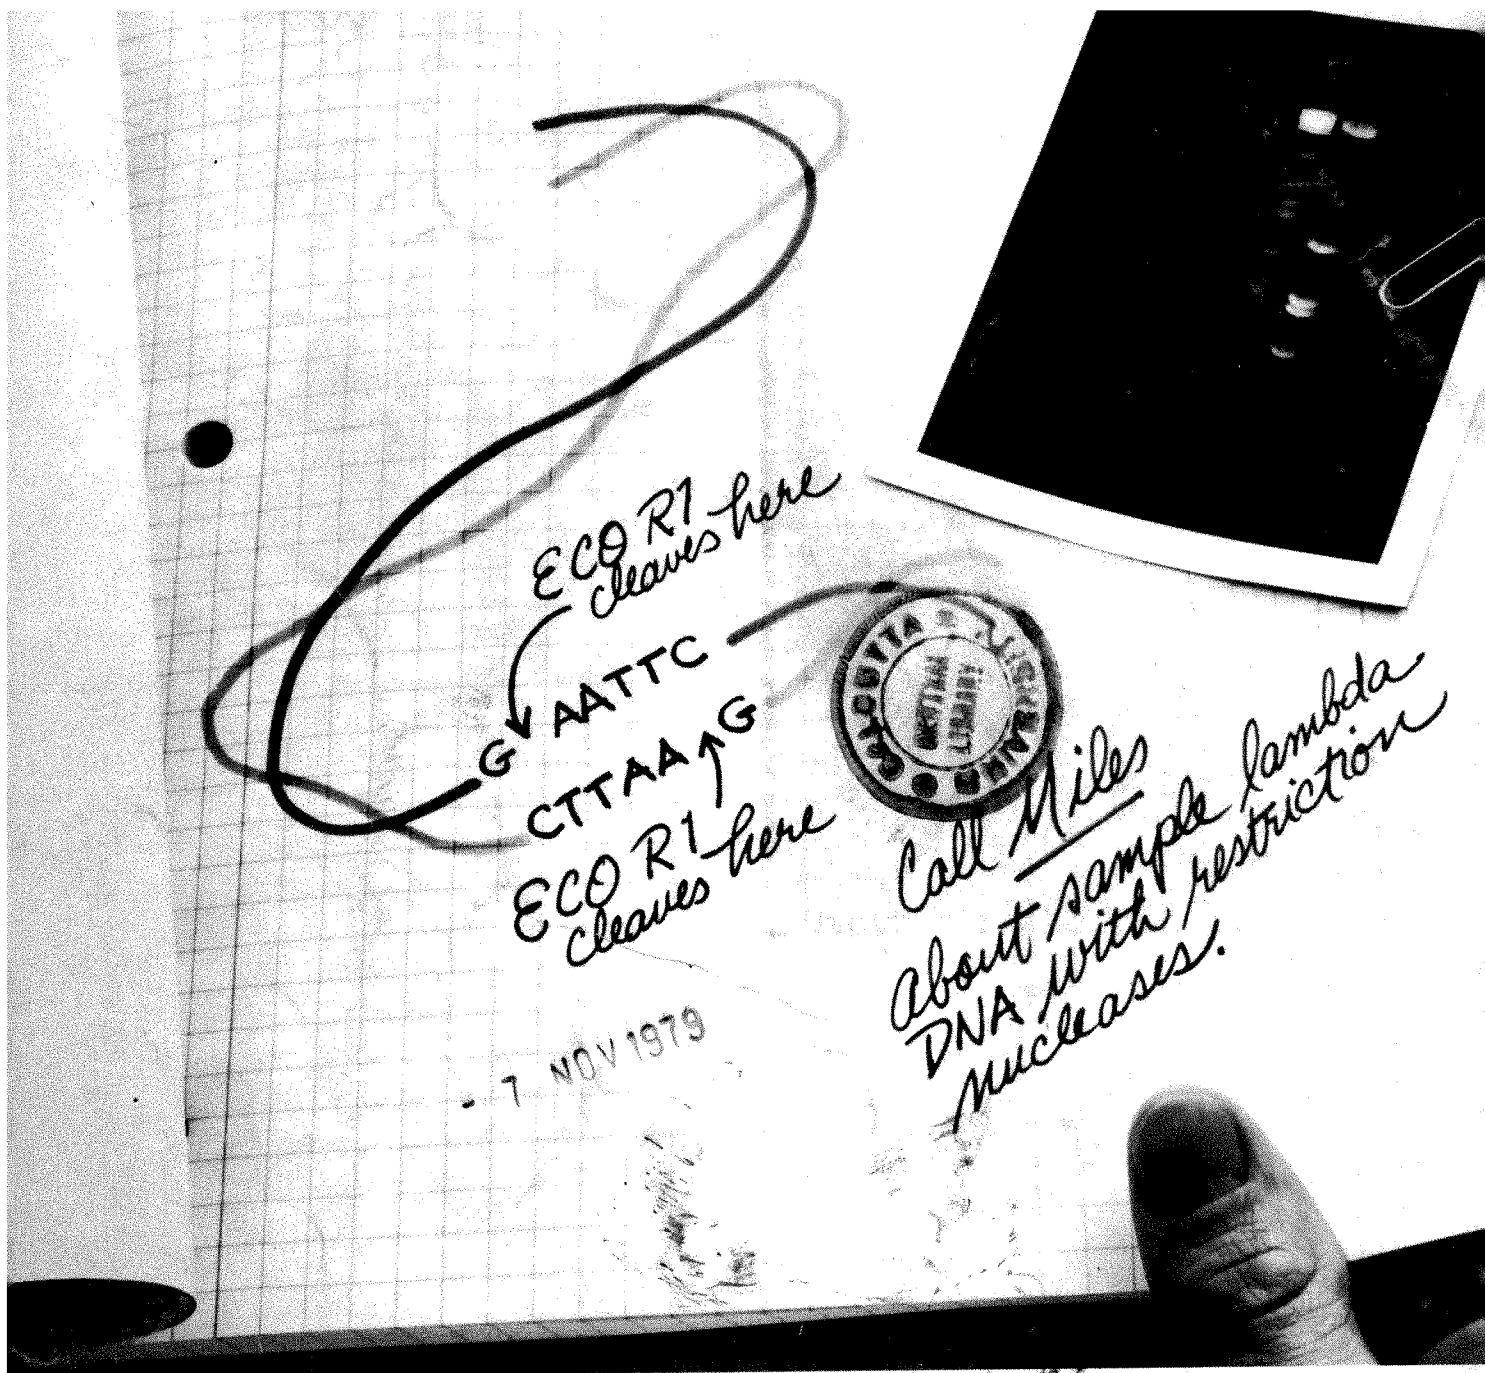 ECO R1
cleaves here
G AATTC
CTTAA G
ECO R1
cleaves here
CALCUTTA
LIBRARY
Call Miles
about sample lambda
DNA with restriction
nucleases.
- 7 NOV 1979